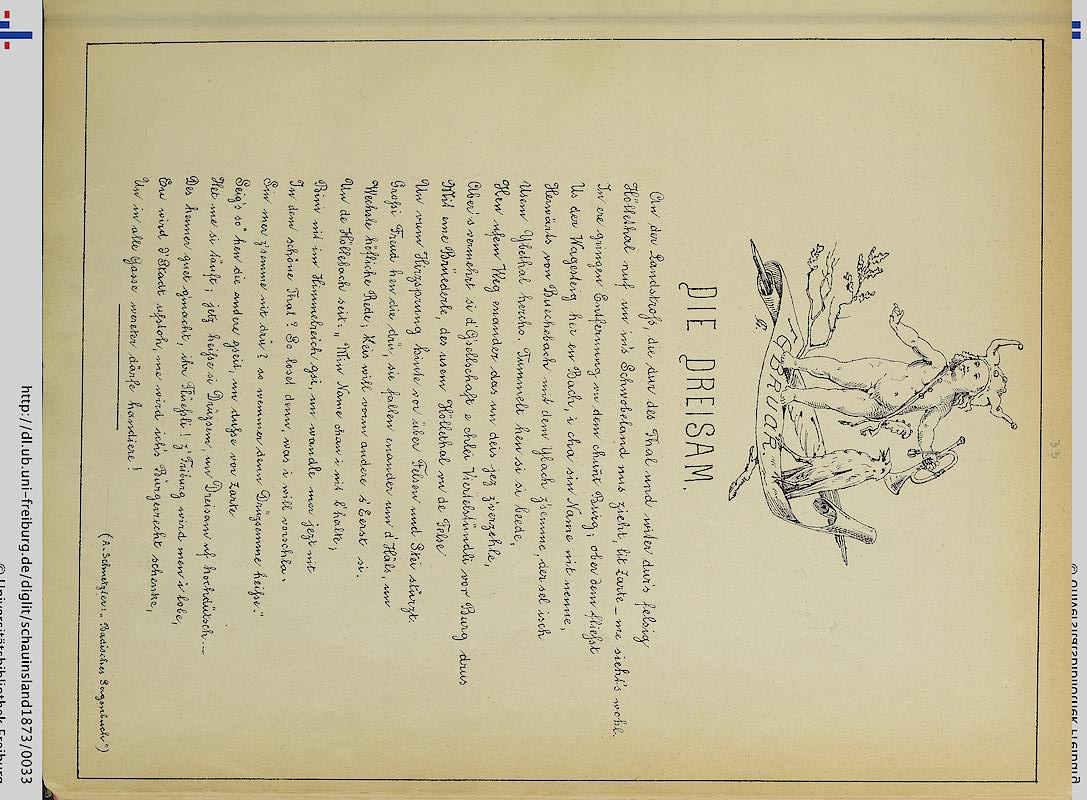 33
G. BRUCAR
DIE DREISAM.
An der Landstroß, die dur des Thal und wider dur's felsig
Höllethal nuf un in's Schwobeland nus zieht, lit Zarte _ me sieht's wohl.
In ere gringen Entfernung vu dem chunt Burg; ober dem fließt
Us der Wagesteig her en Bach, i cha sin Name nit nenne,
Herwärts von Buechebach mit dem Ybach z'semme, der sel isch
Usem Ybethal hercho. Tummelt hen si si beede,
Hen usem Weg enander das un deis jez z'verzehle,
Aber's vermehrt si d'Gsellschaft e chlei Viertelstündli vor Burg drus
Mit eme Brüederle, des usem Höllethal vu de Felse
Un vum Hirzsprung hinte vor über Felsen und Stei stürzt.
Großi Freud hen die drü, sie fallen enander um d'Häls, un
Wechsle höfliche Rede; Keis will vom andere s'Eerst si.
Un de Höllebach seit: „Min Name chan i nit b'halte,
Bin nit im Himmelreich gsi, un wandle mer jezt nit
In dem schöne Thal? So loset denn, was i will vorschla.
Sin mer z'semme nit drü? so wemmer denn Drüsemme heiße."
Seig's so" hen die andere gseit, un dusse vor Zarte
Het me si täuft; jetz heiße si Drüsem, un Dreisam uf hochdütsch...
Des hemmer guet gmacht, ihr Flüeßli! z'Friburg wird men i lobe,
Eu wird d'Stadt ufstoh, me wird ich's Bürgerrecht schenke,
Un in alle Gasse wereter dürfe handiere!
(A. Schnetzler: „Badisches Sagenbuch")
http://dl.ub.uni-freiburg.de/diglit/schauinsland1873/0033
© Universitätsbibliothek Freiburg